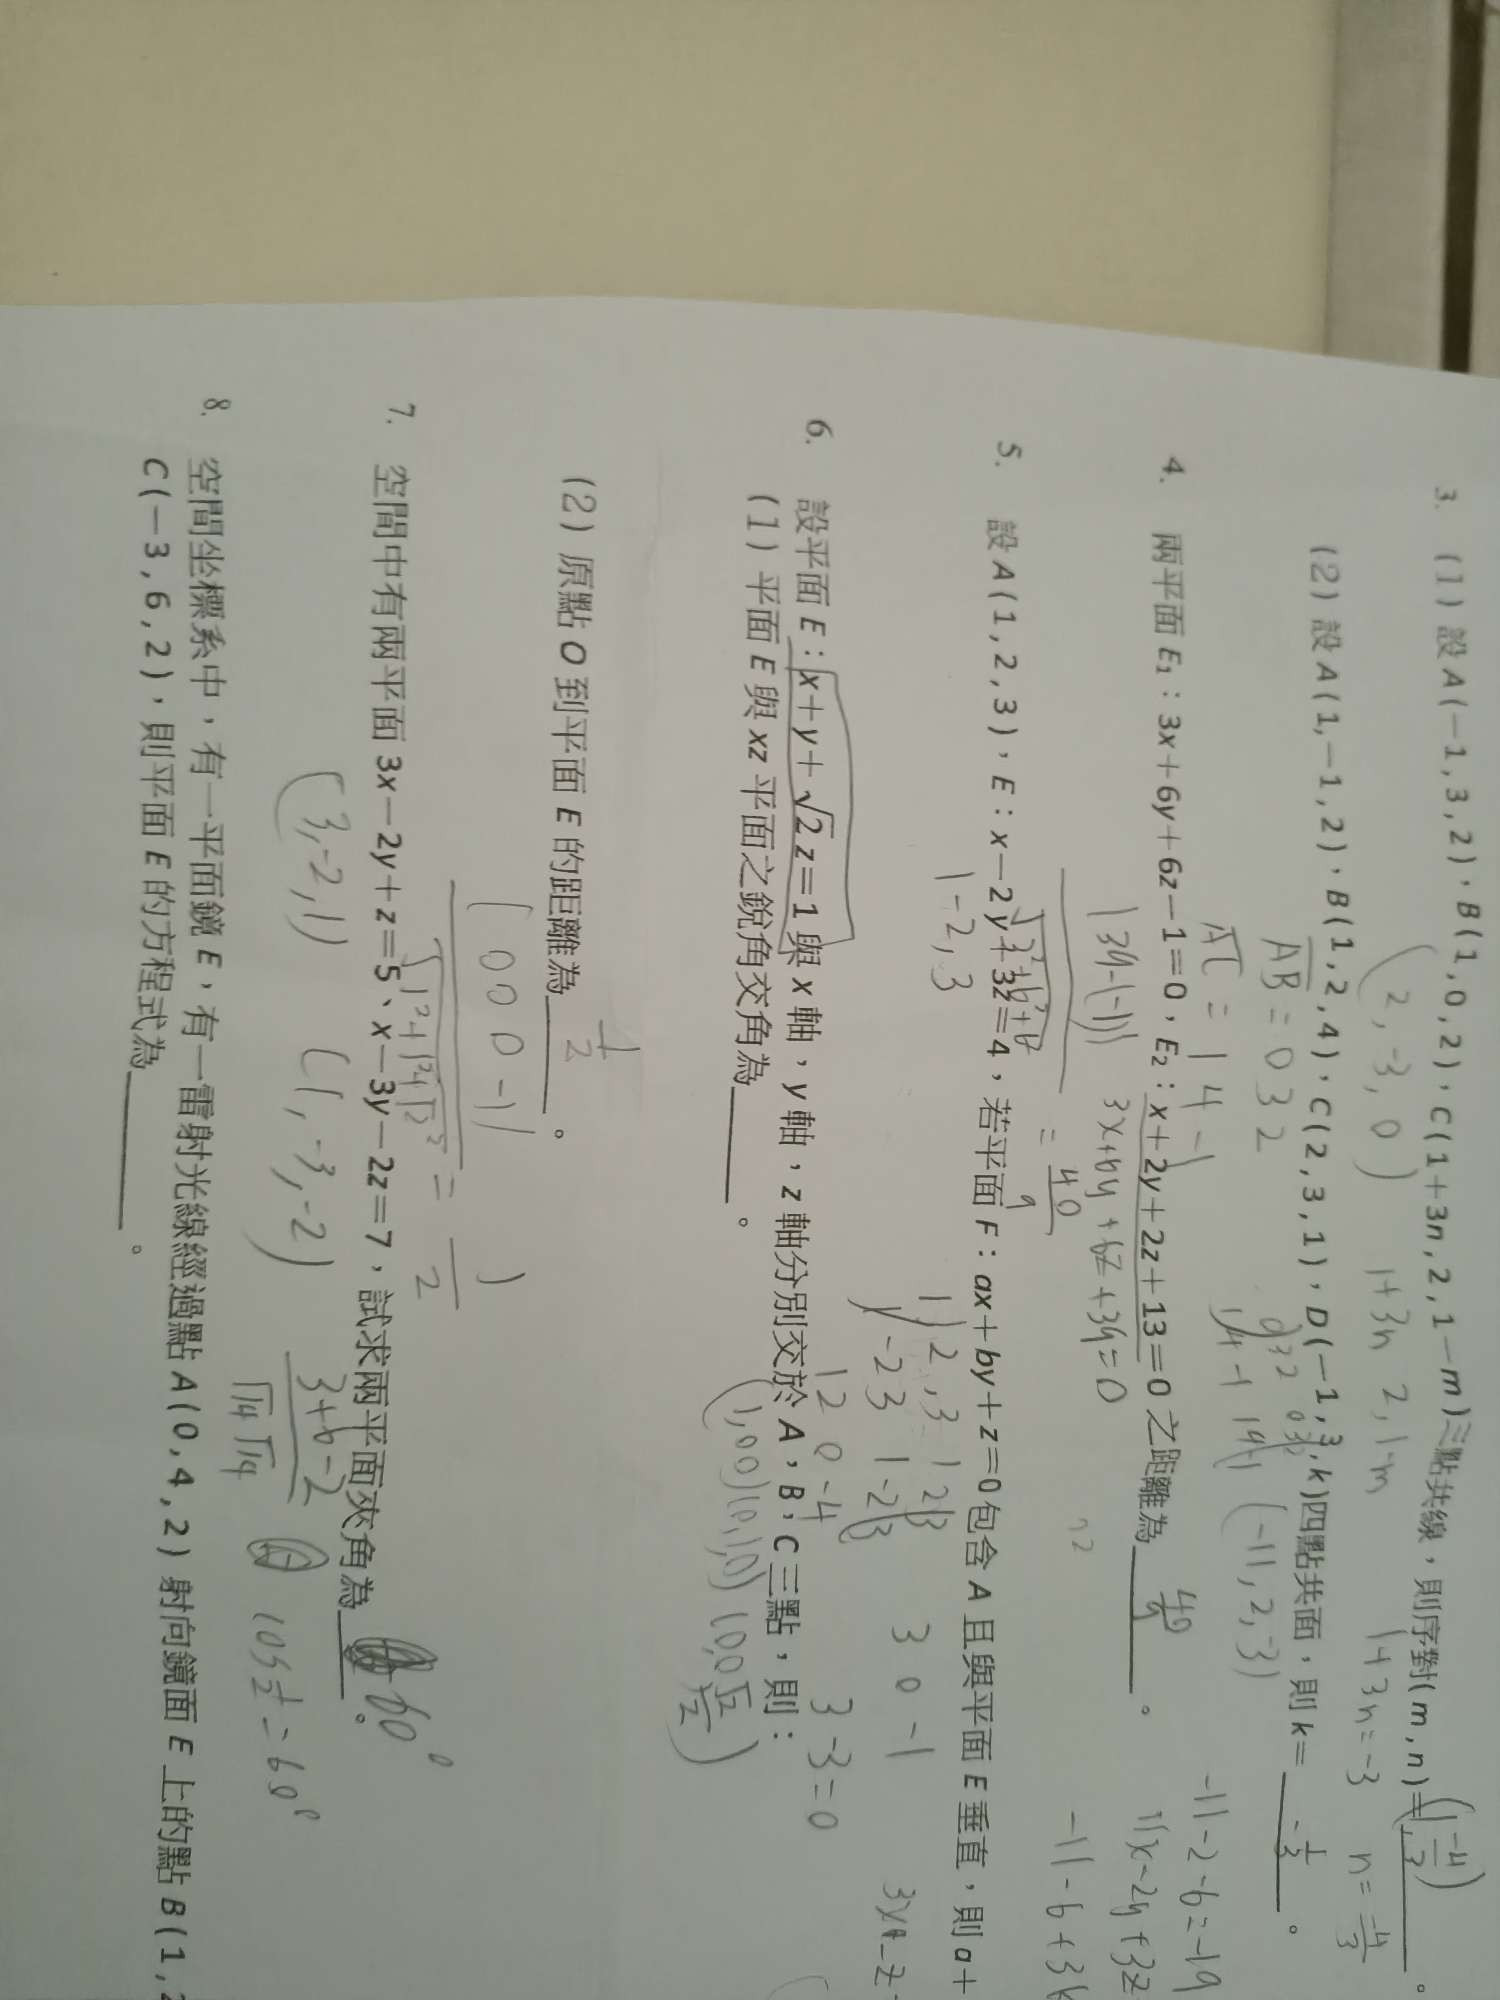 3. (1) 設 A(－1,3,2)、B(1,0,2)、C(1＋3n,2,1－m)三點共線，則序對(m,n)＝
(2,-3,0) 1+3n 2,1-m
1+3n=-3 n=-4/3
(2) 設 A(1,－1,2)、B(1,2,4)、C(2,3,1)、D(－1,3,k)四點共面，則 k＝ -1/3 。
AB = 0 3 2
AC = 1 4 -1
(-11,2,-3)
-11-2-6=-19
4. 兩平面 E₁：3x＋6y＋6z－1＝0，E₂：x＋2y＋2z＋13＝0 之距離為 40/9 。
3x+6y+6z+39=0
|39-(-1)|
√3²+6²+6²
= 40/9
5. 設 A(1,2,3)、E：x－2y＋3z＝4，若平面 F：ax＋by＋z＝0 包含 A 且與平面 E 垂直，則 a＋
1-2,3
3 0 -1
1 2 0 -4
3 -3=0
6. 設平面 E：x＋y＋√2 z＝1 與 x 軸，y 軸，z 軸分別交於 A，B，C 三點，則：
(1,0 0)(0,1,0)(0,0 √2/2)
(1) 平面 E 與 xz 平面之銳角交角為 。
(2) 原點 O 到平面 E 的距離為 1/2 。
|0 0 0 -1|
√1²+1²+√2² = 1/2
7. 空間中有兩平面 3x－2y＋z＝5、x－3y－2z＝7，試求兩平面夾角為 60° 。
(3,-2,1) (1,-3,-2)
3+6-2
√14 √14
cos 1/2 = 60°
8. 空間坐標系中，有一平面鏡 E，有一雷射光線經過點 A(0,4,2) 射向鏡面 E 上的點 B(1,
C(－3,6,2)，則平面 E 的方程式為 。